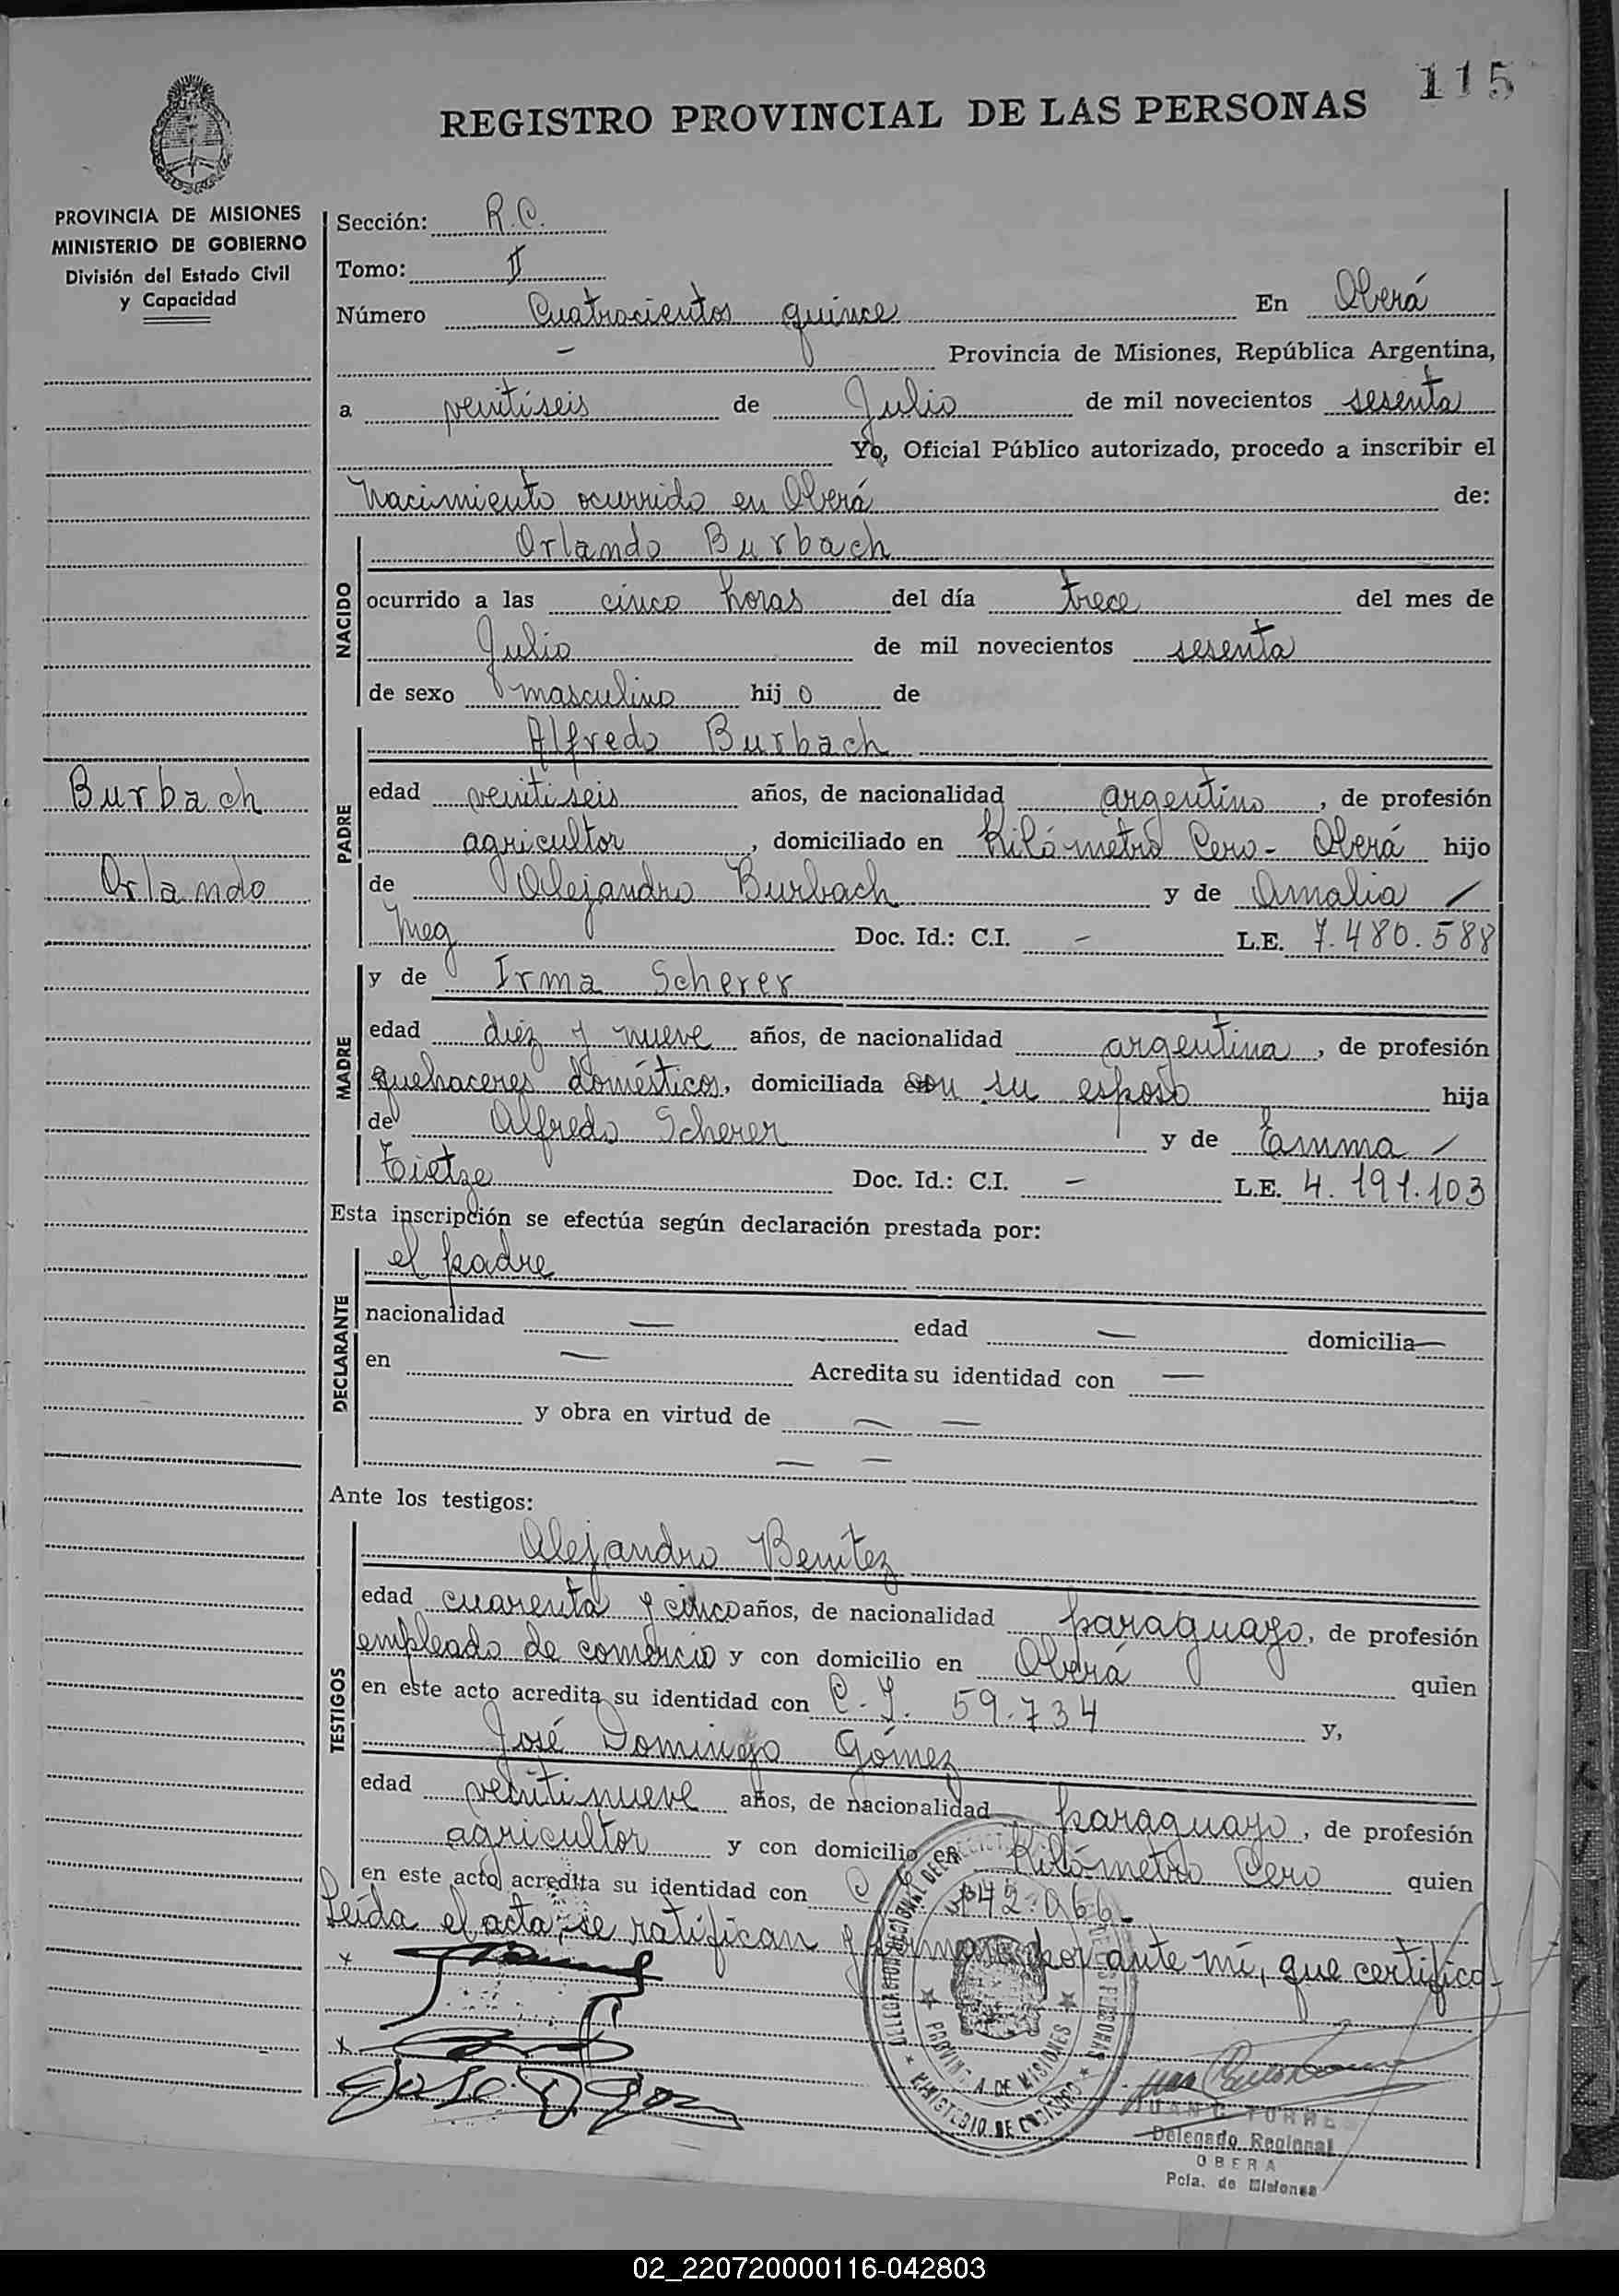 115
REGISTRO PROVINCIAL DE LAS PERSONAS
PROVINCIA DE MISIONES
MINISTERIO DE GOBIERNO
División del Estado Civil
y Capacidad
Burbach
Orlando
Sección: R.C.
Tomo: II
Número Cuatrocientos quince En Oberá
— Provincia de Misiones, República Argentina,
a veintiseis de Julio de mil novecientos sesenta
Yo, Oficial Público autorizado, procedo a inscribir el
Nacimiento ocurrido en Oberá de:
NACIDO
Orlando Burbach
ocurrido a las cinco horas del día trece del mes de
Julio de mil novecientos sesenta
de sexo masculino hijo de
PADRE
Alfredo Burbach
edad veintiseis años, de nacionalidad argentino, de profesión
agricultor, domiciliado en Kilómetro Cero - Oberá hijo
de Alejandro Burbach y de Amalia /
Meg Doc. Id.: C.I. — L.E. 7.480.588
MADRE
y de Irma Scherer
edad diez y nueve años, de nacionalidad argentina, de profesión
quehaceres domésticos, domiciliada con su esposo hija
de Alfredo Scherer y de Emma /
Tietze Doc. Id.: C.I. — L.E. 4.191.103
Esta inscripción se efectúa según declaración prestada por:
DECLARANTE
el padre
nacionalidad — edad — domicilia—
en — Acredita su identidad con —
y obra en virtud de — —
— —
Ante los testigos:
TESTIGOS
Alejandro Benitez
edad cuarenta y cinco años, de nacionalidad paraguayo, de profesión
empleado de comercio y con domicilio en Oberá quien
en este acto acredita su identidad con C.I. 59.734 y,
José Domingo Gómez
edad veintinueve años, de nacionalidad paraguayo, de profesión
agricultor y con domicilio en Kilómetro Cero quien
en este acto acredita su identidad con C
Leída el acta, se ratifican y firman por ante mí, que certifico-
PROVINCIA DE MISIONES
MINISTERIO DE GOBIERNO
JUAN C. TORRES
Delegado Regional
OBERA
Pcia. de Misiones
02_220720000116-042803